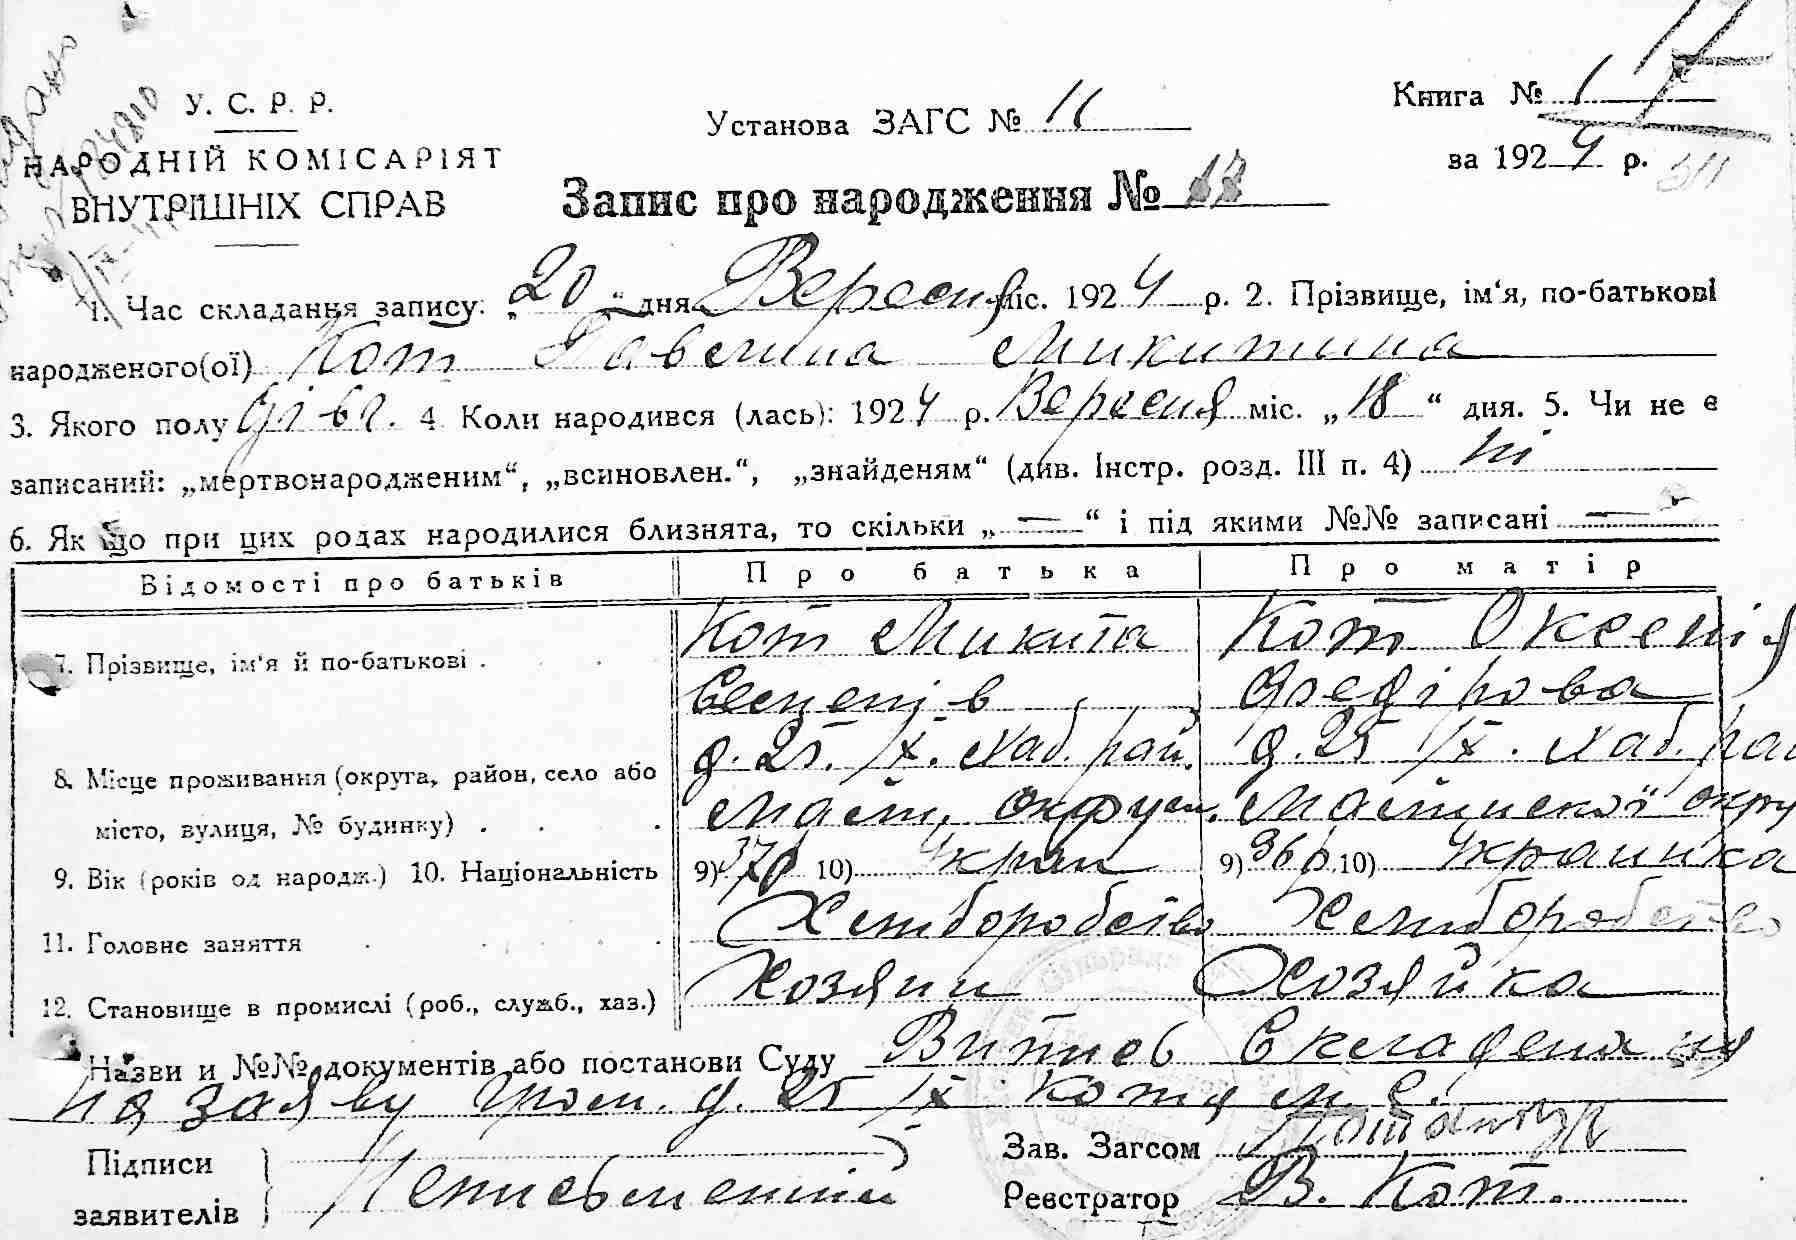 У. С. Р. Р.
НАРОДНІЙ КОМІСАРІЯТ
ВНУТРІШНІХ СПРАВ
Установа ЗАГС № 11
Книга № 1
за 1924 р.
Запис про народження №
1. Час складання запису: „20“ дня Вересня міс. 1924 р. 2. Прізвище, ім‘я, по-батькові
народженого(ої) Кот Павлина Микитина
3. Якого полу дівч. 4 Коли народився (лась): 1924 р. Вересня міс. „18“ дня. 5. Чи не є
записаний: „мертвонародженим“, „всиновлен.“, „знайденям“ (див. Інстр. розд. III п. 4) ні
6. Як що при цих родах народилися близнята, то скільки „—“ і під якими №№ записані —
Відомості про батьків Про батька Про матір
7. Прізвище, ім‘я й по-батькові . Кот Микита Кот Оксенія
Семенів Федірова
8. Місце проживання (округа, район, село або місто, вулиця, № будинку) . д. 25. /X. Хаб. рай. д. 25 /X. Хаб. рай
округи. округ
9. Вік (років од народж.) 10. Національність 9) 37р 10) Украї 9) 36р. 10) Українка
11. Головне заняття Хлиборобство Хлиборобство
12. Становище в промислі (роб., служб., хаз.) Хозяин Хозяйка
Назви и №№ документів або постанови Суду
на заяву гром. д. 25 /X Котя М. С.
Підписи
заявителів Неписьменний
Зав. Загсом
Реєстратор В. Кот.